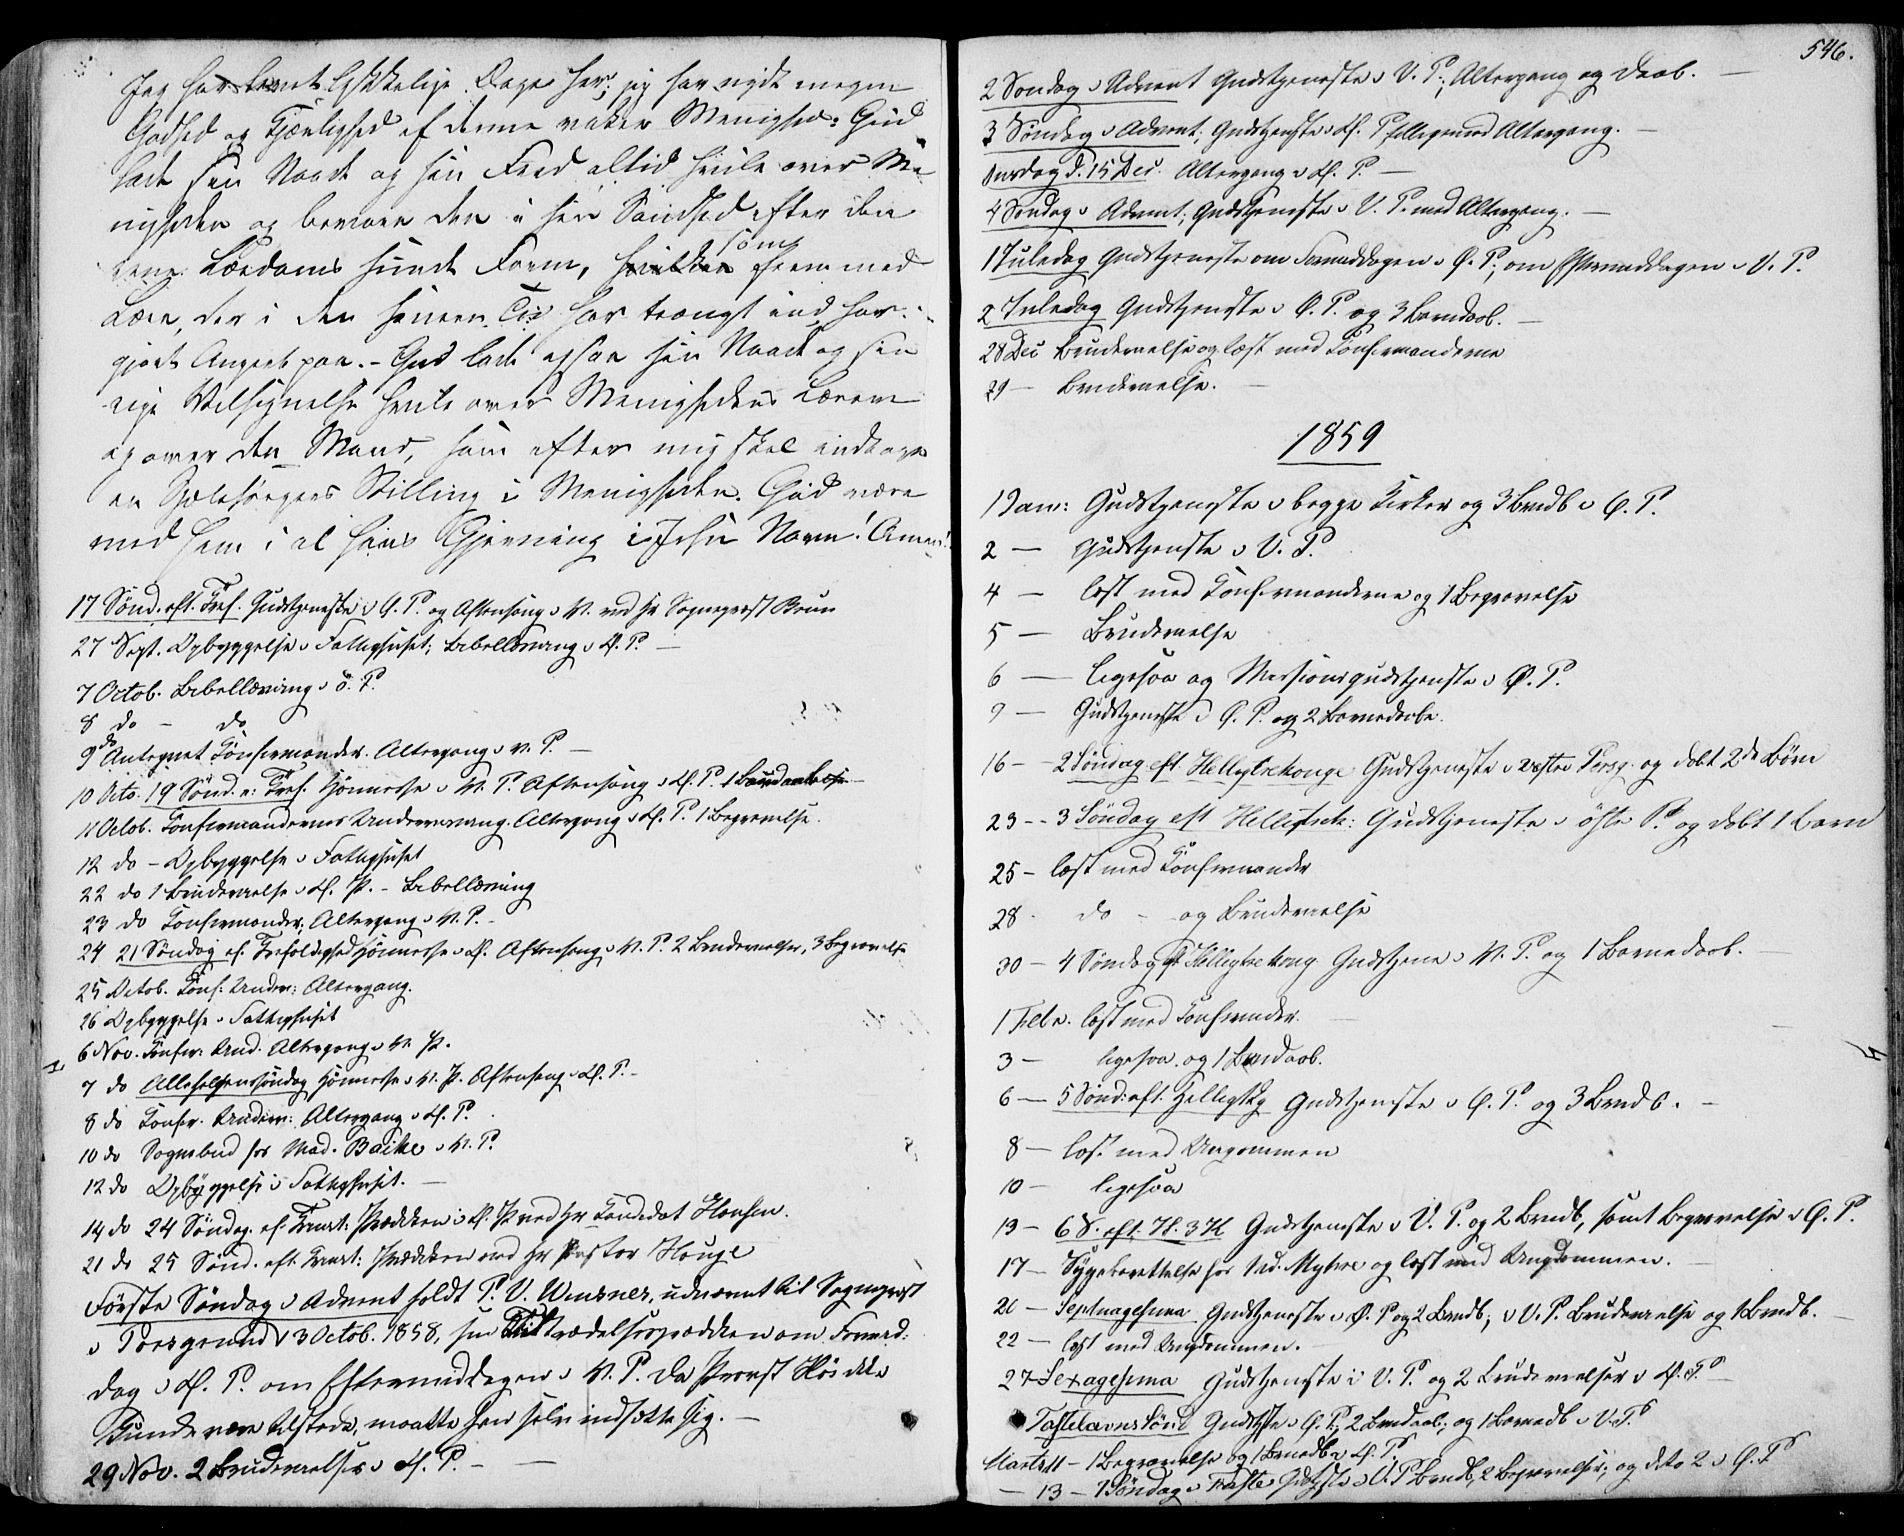 Jeg har levet lykkelige Dage her; jeg har nydt megen
Godhed og Kjærlighed af denne vakre Menighed. Gud
lade sin Naade og sin Fred altid hvile over Me
nigheden og bevare den i sin Sandhed efter den
rene Lærdoms sunde Form, hvilken som fremmed
Lære, der i den senere Tid har trængt ind, har
gjort Angreb paa. – Gud lade ogsaa sin Naade og sin
rige Velsignelse hvile over Menighedens Lærere
og over den Mand, som efter mig skal indtage
en Sjælesørgers Stilling i Menigheden. Gud være
med ham i al hans Gjerning i Jesu Navn! Amen!
17 Sönd. eft. Tref. Gudstjeneste i Ø. P. og Aftensang i V. ved Hr Sogneprest Bruun
27 Sept. Opbyggelse i Fattighuset; Bibellæsning i Ø. P. —
7 Octob. Bibellæsning i Ø. P.
8 do – do
9 do Antegnet Konfirmander. Altergang i V. P. —
10 Octo. 19 Sönd. e: Tref. Høimesse i V. P. Aftensang i Ø. P. 1 Brudevielse
11 Octob. Konfirmandernes Underviisning. Altergang i Ø. P. 1 Begravelse.
12 do – Opbyggelse i Fattighuset
22 do 1 Brudevielse i Ø. P. – Bibellæsning
23 do Konfirmander; Altergang i V. P. –
24 21 Söndag ef. Trefoldighed Høimesse i Ø. Aftensang i V. P. 2 Brudevielser, 3 Begravelse
25 Octob. Konf. Under: Altergang.
26 Opbyggelse i Fattighuset
6 Nov. Konfir: Und. Altergang i V. P.
7 do Allehelgenssöndag Høimesse i V. P. Aftensang i Ø. P. –
8 do Konfir. Underv: Altergang i Ø. P.
10 do Sognebud hos Mad. Backe i V. P.
12 do Opbyggelse i Fattighuset. —
14 do 24 Söndag. ef. Trinit: Prædiken i Ø. P ved Hr Kandidat Hansen.
21 do 25 Sönd. eft. Trinit: Prædiken ved Hr Pastor Hauge
Første Söndag i Advent holdt P. V. Wensner, udnævnt til Sogneprest
i Porsgrund 13 Octob. 1858, sin Tiltrædelsesprædiken om Formid:
dag i Ø. P. om Eftermiddagen i V. P. Da Provst ikke
kunde være tilstede, maatte han selv indsætte sig. —
29 Nov. 2 Brudevielser i Ø. P. – —
546.
2 Söndag i Advent Gudstjeneste i V. P., Altergang og Daab. —
3 Söndag i Advent; Gudstjeneste i Ø. P. tilligemed Altergang. —
Onsdag d. 15 Dec. Altergang i Ø. P. —
4 Söndag i Advent; Gudstjeneste i V. P. med Altergang. —
1 Juledag Gudstjeneste om Formiddagen i Ø. P.; om Eftermiddagen i V. P.
2 Juledag Gudstjeneste i Ø. P. og 3 Barnedaab. —
28 Dec Brudevielse og læst med Konfirmanderne
29 — Brudevielse. —
1859
1 Jan: Gudstjeneste i begge Kirker og 3 Barndb i Ø. P.
2 — Gudstjeneste i V. P.
4 — læst med Konfirmanderne og 1 Begravelse
5 — Brudevielse
6 — ligesaa og Missionsgudstjeneste i Ø. P.
9 — Gudstjeneste i Ø. P. og 2 Barnedaabe.
16 – 2 Söndag eft Helligtrekonge Gudstjeneste i vestre Porsg. og döbt 2de Børn
23 – – 3 Söndag eft Helligtrek: Gudstjeneste i østre P. og döbt 1 Barn
25 – læst med Konfirmander
28 – do – og Brudevielse
30 – 4 Söndag eft Helligtrekong Gudstjene i V. P. og 1 Barnedaab. —
1 Febr. læst med Konfirmander. —
3 – ligesaa og 1 Barndaab.
6 — 5 Sönd: eft. Helligtkg Gudstjeneste i Ø. P. og 3 Barndb. –
8 – læst med Ungdommen
10 – ligesaa
13 – 6 S. eft. H. 3 K Gudstjeneste i V. P. og 2 Barndb, samt Begravelse i Ø. P.
17 – Sygeberettelse hos Mad. og læst med Ungdommen. —
20 – Septuagesima Gudstjeneste i Ø. P og 2 Barndb; i V. P. Brudevielse og 1 Barndb. —
22 – læst med Ungdommen. –
27 Sexagesima Gudstjeneste i V. P. og 2 Brudevielser i Ø. P —
Fastelavns Sönd Gudstjste i Ø. P., 2 Barndaab; og 1 Barnedb i V. P.
Marts 11 – 1 Begravelse og 1 Barnedb i Ø. P.
– 13 – 1 Söndag i Faste Gudstjste i V. P Barndb, 2 Begravelser; og dito 2 i Ø. P